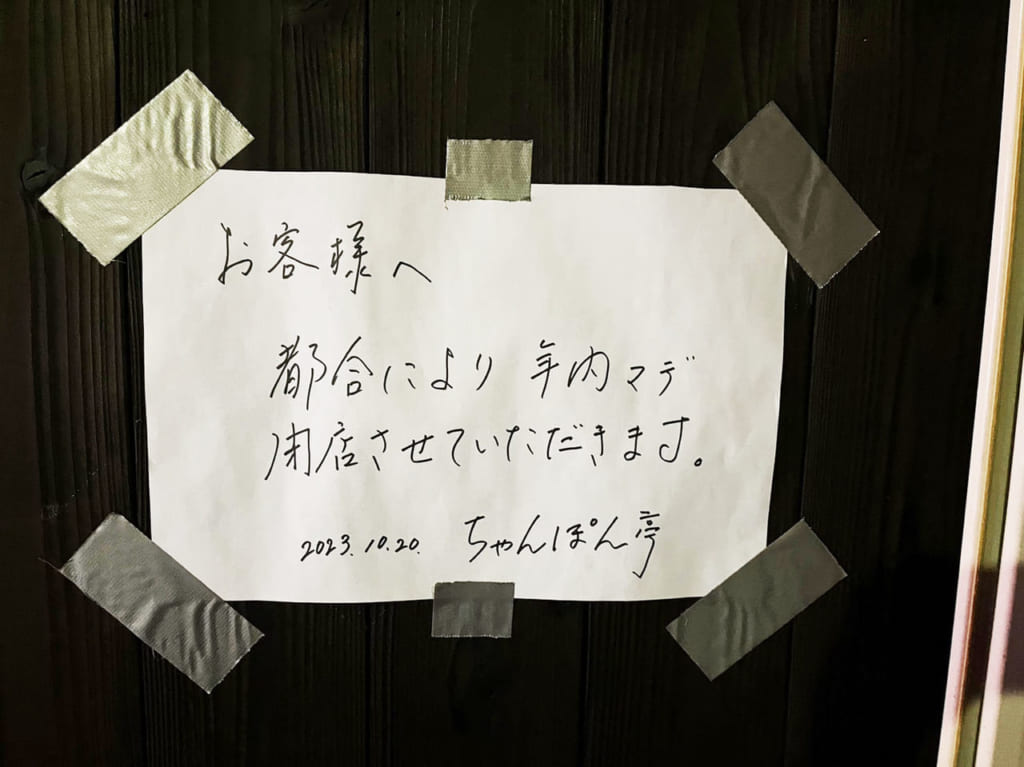 お客様へ
都合により 年内マデ
閉店させていただきます。
2023.10.20. ちゃんぽん亭